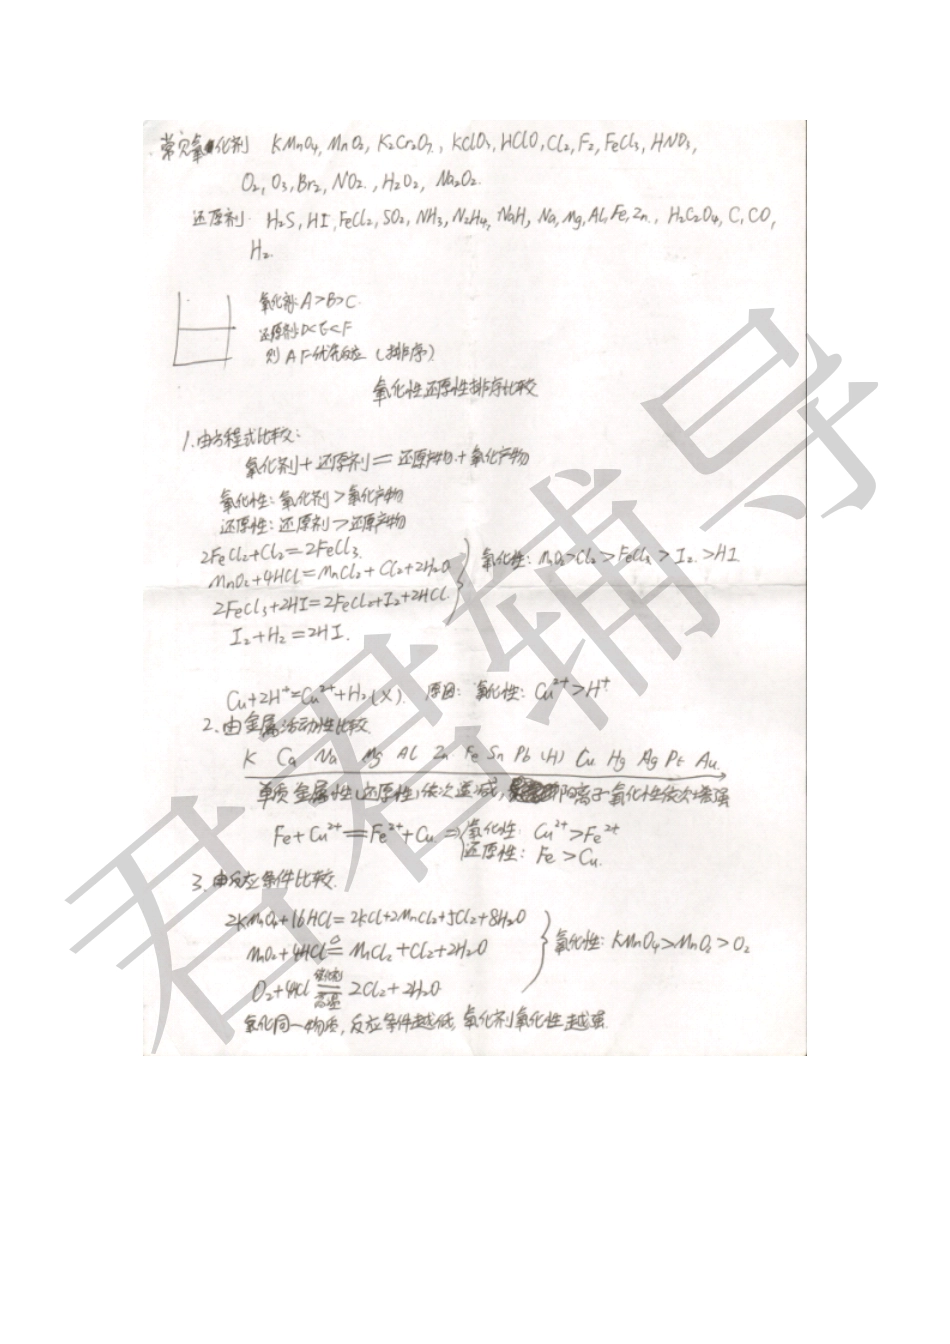 常见氧化剂 KMnO4, MnO2, K2Cr2O7, KClO3, HClO, Cl2, F2, FeCl3, HNO3,
O2, O3, Br2, NO2, H2O2, Na2O2.
还原剂 H2S, HI, FeCl2, SO2, NH3, N2H4, NaH, Na, Mg, Al, Fe, Zn, H2C2O4, C, CO,
H2.
氧化剂: A>B>C.
还原剂: D<E<F
则 A F 优先反应 (排序)
氧化性还原性排序比较
1. 由方程式比较:
氧化剂+还原剂=还原产物+氧化产物
氧化性: 氧化剂>氧化产物
还原性: 还原剂>还原产物
2FeCl2+Cl2=2FeCl3.
MnO2+4HCl=MnCl2+Cl2+2H2O
氧化性: MnO2>Cl2>FeCl3>I2>HI
2FeCl3+2HI=2FeCl2+I2+2HCl
I2+H2=2HI.
Cu+2H⁺=Cu²⁺+H2 (X). 原因: 氧化性: Cu²⁺>H⁺
2. 由金属活动性比较
K Ca Na Mg Al Zn Fe Sn Pb (H) Cu Hg Ag Pt Au
单质金属性(还原性)依次递减, 阳离子氧化性依次增强
Fe+Cu²⁺=Fe²⁺+Cu ⇒ 氧化性: Cu²⁺>Fe²⁺
还原性: Fe>Cu.
3. 由反应条件比较
2KMnO4+16HCl=2KCl+2MnCl2+5Cl2+8H2O
MnO2+4HCl=MnCl2+Cl2+2H2O
氧化性: KMnO4>MnO2>O2
O2+4HCl 催化剂 高温 2Cl2+2H2O
氧化同一物质, 反应条件越低, 氧化剂氧化性越强
君君辅导